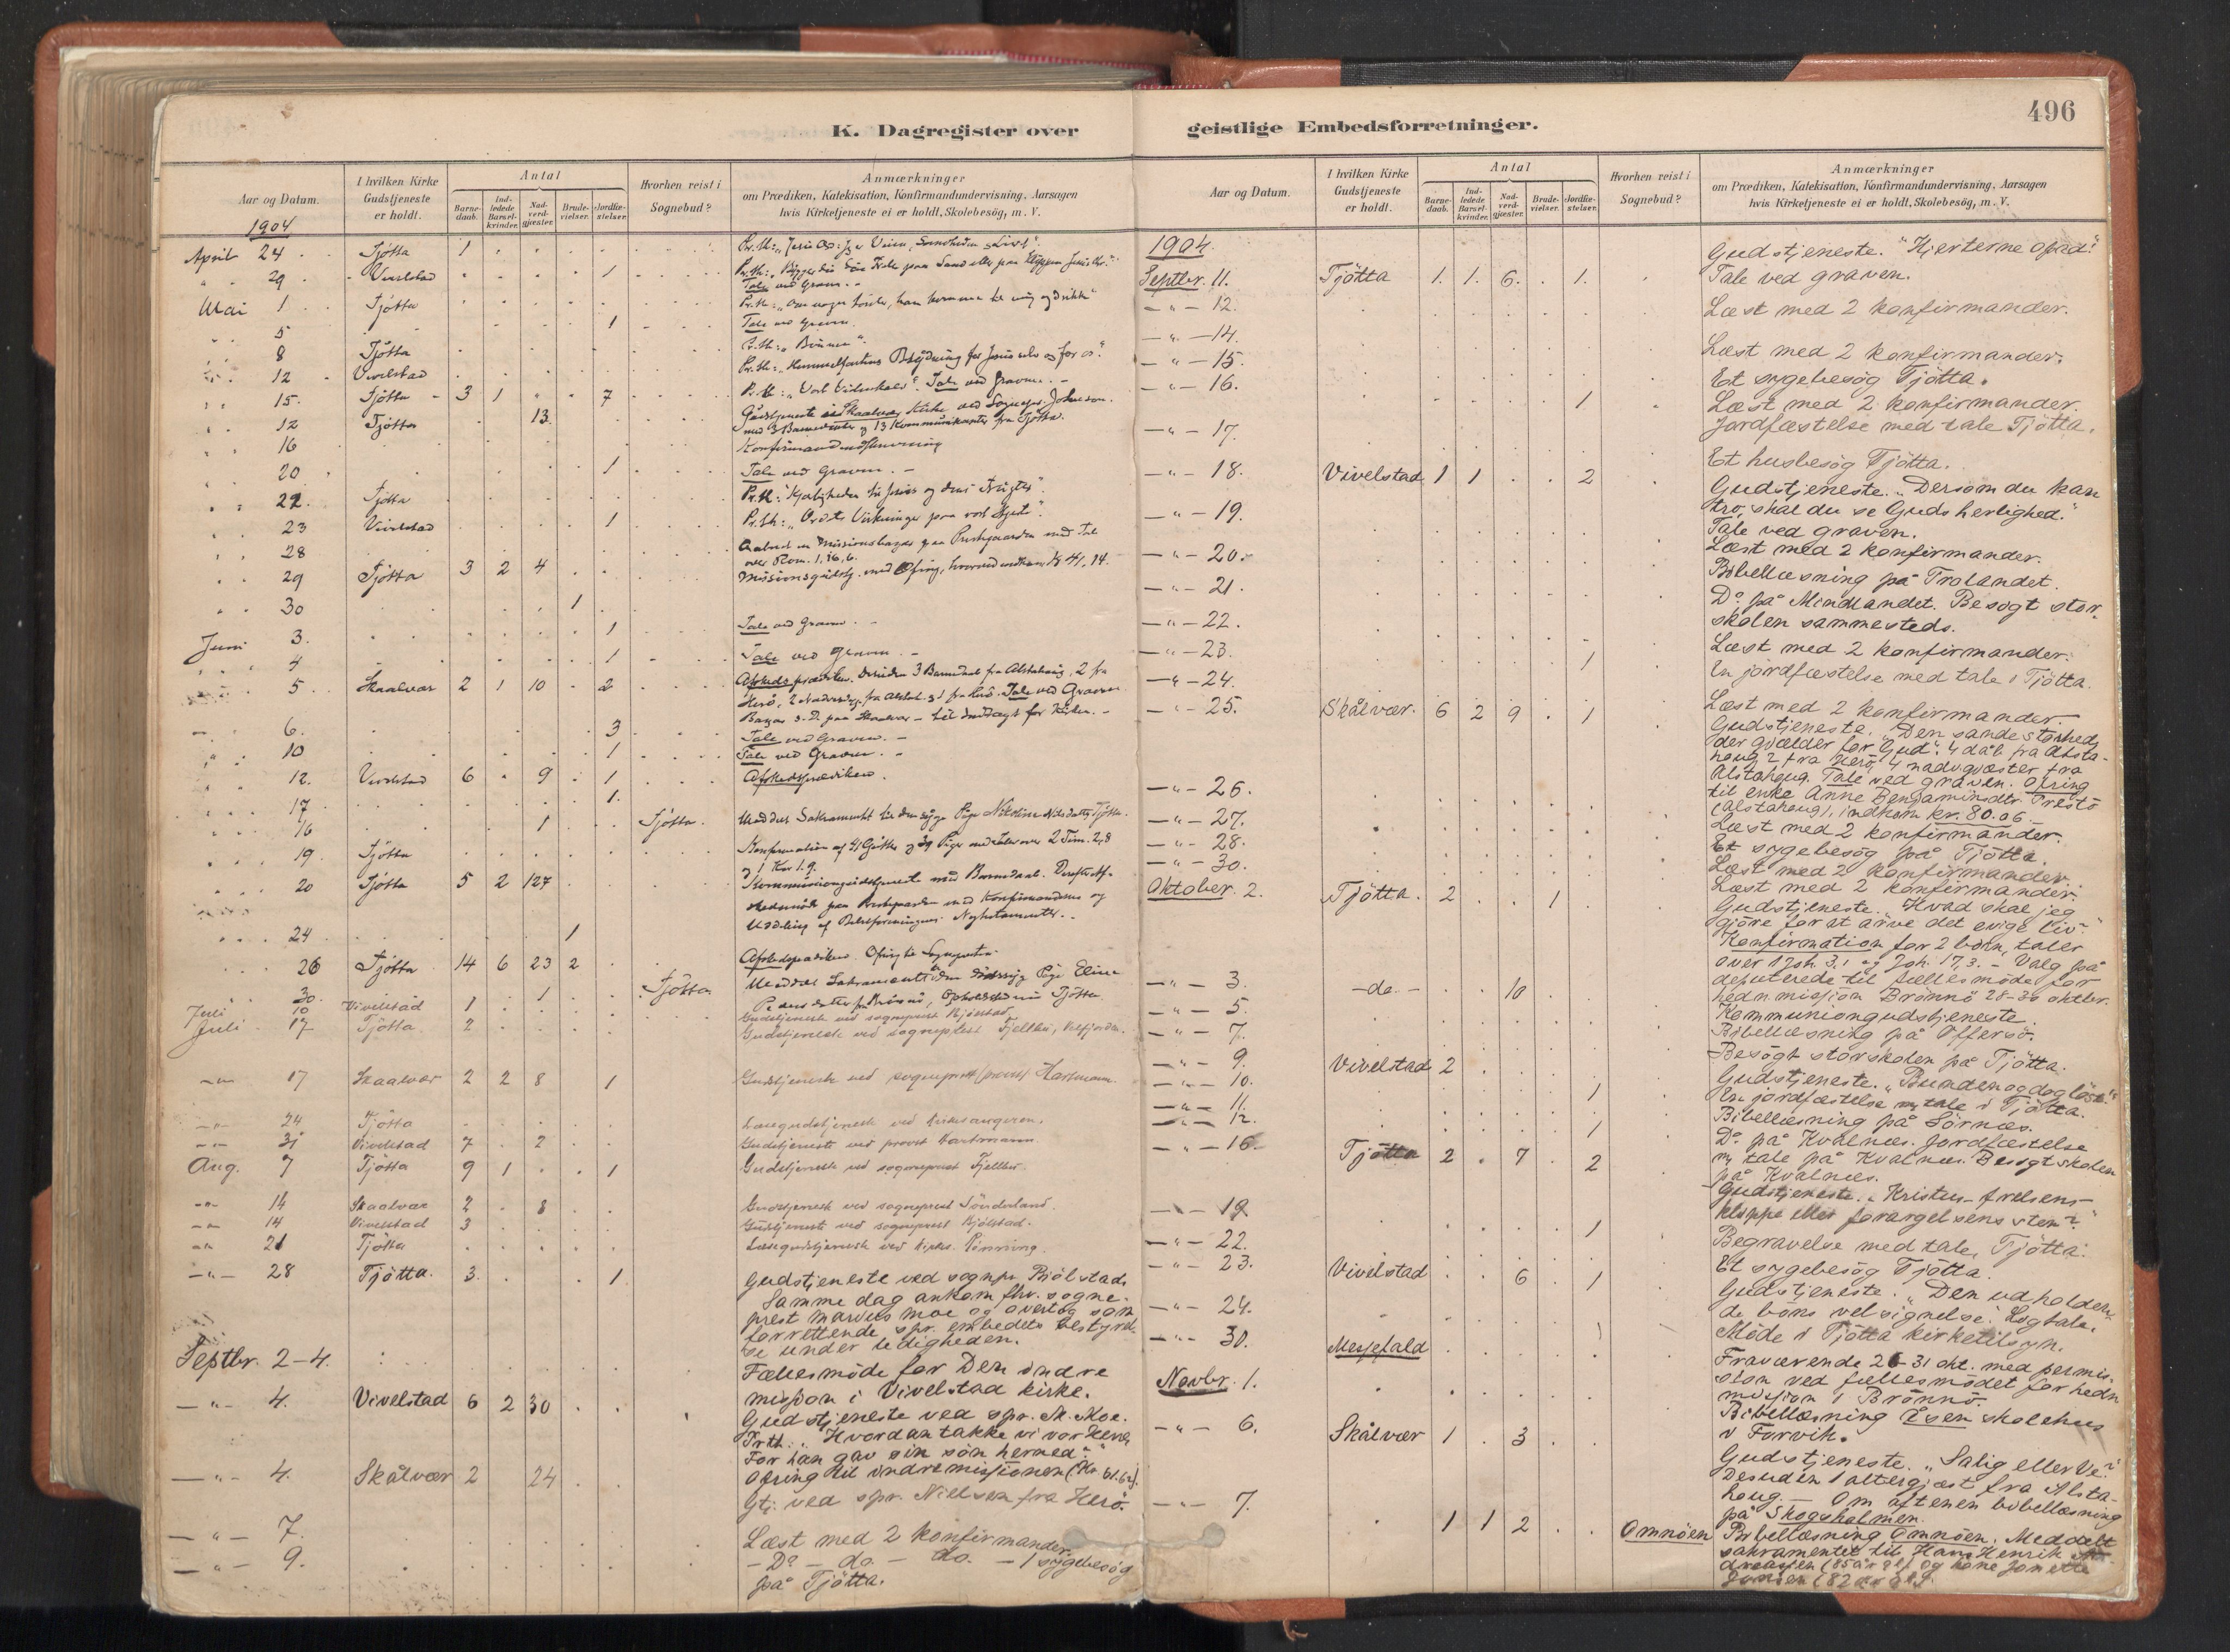 496
K. Dagregister over geistlige Embedsforretninger.
Aar og Datum.
I hvilken Kirke Gudstjeneste er holdt.
Antal
Barne-daab.
Ind-ledede Barsel-kvinder.
Nad-verd-gjæster.
Brude-vielser.
Jordfæ-stelser.
Hvorhen reist i Sognebud?
Anmærkninger
om Prædiken, Katekisation, Konfirmandundervisning, Aarsagen
hvis Kirketjeneste ei er holdt, Skolebesøg, m. V.
1904
April 24 Tjötta 1
29 Vivelstad 1
Tale ved Graven.
Mai 1 Tjötta
5 1 Tale ved Graven.
8 Tjötta
12 Vivelstad
15. Tjötta 3 1 7 Tale ved Graven. -
12 Tjötta 13. Gudstjeneste ved Skaalvær Kirke ved Sognepr. Johnson.
16 Konfirmandundervisning
20 1 Tale ved Graven. -
22. Tjötta
23 Vivelstad 1
28
over Rom. 1, 16,
29 Tjötta 3 2 4
30 1
Juni 3. 1 Tale ved Graven. -
4 1 Tale ved Graven. -
5 Skaalvær 2 1 10 2 Afskedsprædiken. Desuden 3 Barnedaab fra Alstahaug, 2 fra
Herö, Tale ved Graven
6. 3 Tale ved Graven. -
10 1 Tale ved Graven. -
12. Vivelstad 6 9 1 Afskedsprædiken.
17 1.
16 1 Tjötta. Meddelt Sakramentet til den syge Pige Nikoline Nilsdatter, Tjötta.
19 Tjötta Konfirmation af Gutter og Piger med Taler over 2 Tim. 2,8
og 1 Kor. 1.9.
20 Tjötta 5 2 127 Kommuniongudstjeneste med Barnedaab.
24 1
26 Tjötta 14 6 23 2 Afskedsprædiken.
30. 1 Tjötta
Juli 10 Vivelstad 1 Gudstjeneste ved sogneprest Bjölstad
Juli 17 Tjötta. 2 Gudstjeneste ved sogneprest Fjellbu, Velfjorden.
17 Skaalvær 2 2 8 1 Gudstjeneste ved sogneprest (provst) Hartmann.
24 Tjötta Læsegudstjeneste ved kirkesangeren.
31 Vivelstad 7 2 Gudstjeneste ved provst Hartmann
Aug. 7 Tjötta 9 1 1 Gudstjeneste ved sogneprest Fjellbu.
14 Skaalvær 2 8 Gudstjeneste ved sogneprest Sönderland.
14 Vivelstad 3 Gudstjeneste ved sogneprest Bjölstad.
21 Tjötta Læsegudstjeneste ved kirkes. Rönning.
—"— 28 Tjötta. 3. 1 Gudstjeneste ved sognepr. Bjölstad.
Samme dag ankom fhv. sogne-
prest Marius Moe og overtog som
forrettende spr. embedets bestyrel-
se under ledigheden.
Septbr. 2-4. Fællesmöde for Den indre
mission i Vivelstad kirke.
—"— 4. Vivelstad 6 2 30 Gudstjeneste ved spr. M. Moe.
Prth.: "Hvordan takke vi vor Herre
For han gav sin sön herned?"
Ofring til indremissionen (Kr. 61.62).
—"— 4. Skålvær 2 24 Gtj. ved spr. Nielsen fra Herö.
—"— 7. Læst med 2 konfirmander.
—"— 9. - Do - do. - do. - 1 sygebesög
på Tjötta.
Aar og Datum.
I hvilken Kirke Gudstjeneste er holdt.
Antal
Barne-daab.
Ind-ledede Barsel-kvinder.
Nad-verd-gjæster.
Brude-vielser.
Jordfæ-stelser.
Hvorhen reist i Sognebud?
Anmærkninger
om Prædiken, Katekisation, Konfirmandundervisning, Aarsagen
hvis Kirketjeneste ei er holdt, Skolebesög, m. V.
1904.
Septbr. 11. Tjötta 1. 1. 6. 1. Gudstjeneste. "Hjerterne opad!"
Tale ved graven.
—"— 12. Læst med 2 konfirmander.
—"— 14. Læst med 2 konfirmander.
—"— 15. Et sygebesög Tjötta.
—"— 16. 1 Læst med 2 konfirmander.
Jordfæstelse med tale Tjötta.
—"— 17. Et husbesög Tjötta.
—"— 18. Vivelstad 1 1 2 Gudstjeneste. "Dersom du kan
tro, skal du se Guds herlighed."
Tale ved graven.
—"— 19. Læst med 2 konfirmander.
—"— 20. Bibellæsning på Trolandet.
—"— 21. Do på Mindlandet. Besögt stor-
skolen sammesteds.
—"— 22. Læst med 2 konfirmander.
—"— 23. 1 En jordfæstelse med tale i Tjötta.
—"— 24. Læst med 2 konfirmander.
—"— 25. Skålvær. 6 2 9 1 Gudstjeneste. "Den sande storhed,
der gjælder for Gud". 4 dåb fra Alsta-
haug 2 fra Herö, 4 nadvgjæster fra
Alstahaug. Tale ved graven. Ofring
til enke Anne Benjaminsdtr. Prestö
(Alstahaug), indkom kr. 80.06.
—"— 26. Læst med 2 konfirmander.
—"— 27. Et sygebesög på Tjötta.
—"— 28. Læst med 2 konfirmander.
—"— 30. Læst med 2 konfirmander.
Oktober 2. Tjötta. 2 1 Gudstjeneste. "Hvad skal jeg
gjöre for at arve det evige liv".
Konfirmation for 2 börn, taler
over 1 Joh. 3,1 og Joh. 17,3. - Valg på
deputerede til fællesmöde for
hedn. mission Brönnö 28-30 oktbr.
—"— 3. -do.- 10 Kommuniongudstjeneste.
—"— 5. Bibellæsning på Offersö.
—"— 7. Besögt storskolen på Tjötta.
—"— 9. Vivelstad 2 Gudstjeneste. "Bunden og dog löst."
—"— 10. 1 En jordfæstelse m/ tale i Tjötta.
—"— 11. Bibellæsning på Sörnæs.
—"— 12. 1 Do på Kvalnæs. Jordfæstelse
m/ tale på Kvalnæs. Besögt skolen
på Kvalnæs.
—"— 16. Tjötta 2 7 2 Gudstjeneste. "Kristus - frelsens-
klippe eller forargelsens sten?"
—"— 19 1 Begravelse med tale, Tjötta.
—"— 22. Et sygebesög Tjötta.
—"— 23. Vivelstad 6 1 Gudstjeneste. "Den udholden-
de böns velsignelse". Ligtale.
—"— 24. Möde i Tjötta kirketilsyn.
—"— 30. Messefald Fraværende 26-31 okt. med permis-
sion ved fællesmödet for hedn
mission i Brönnö.
Novbr. 1. Bibellæsning Åsen skolehus
i Forvik.
—"— 6. Skålvær 1 3 Gudstjeneste. "Salig eller Ve?"
Desuden 1 altergjæst fra Alsta-
haug. - Om aftenen bibellæsning
på Skogsholmen.
—"— 7. 1 1 2 Omnöen Bibellæsning Omnöen. Meddelt
sakramentet til Hans Henrik
(85 år gl) og kone Jonette
(82 år gl).